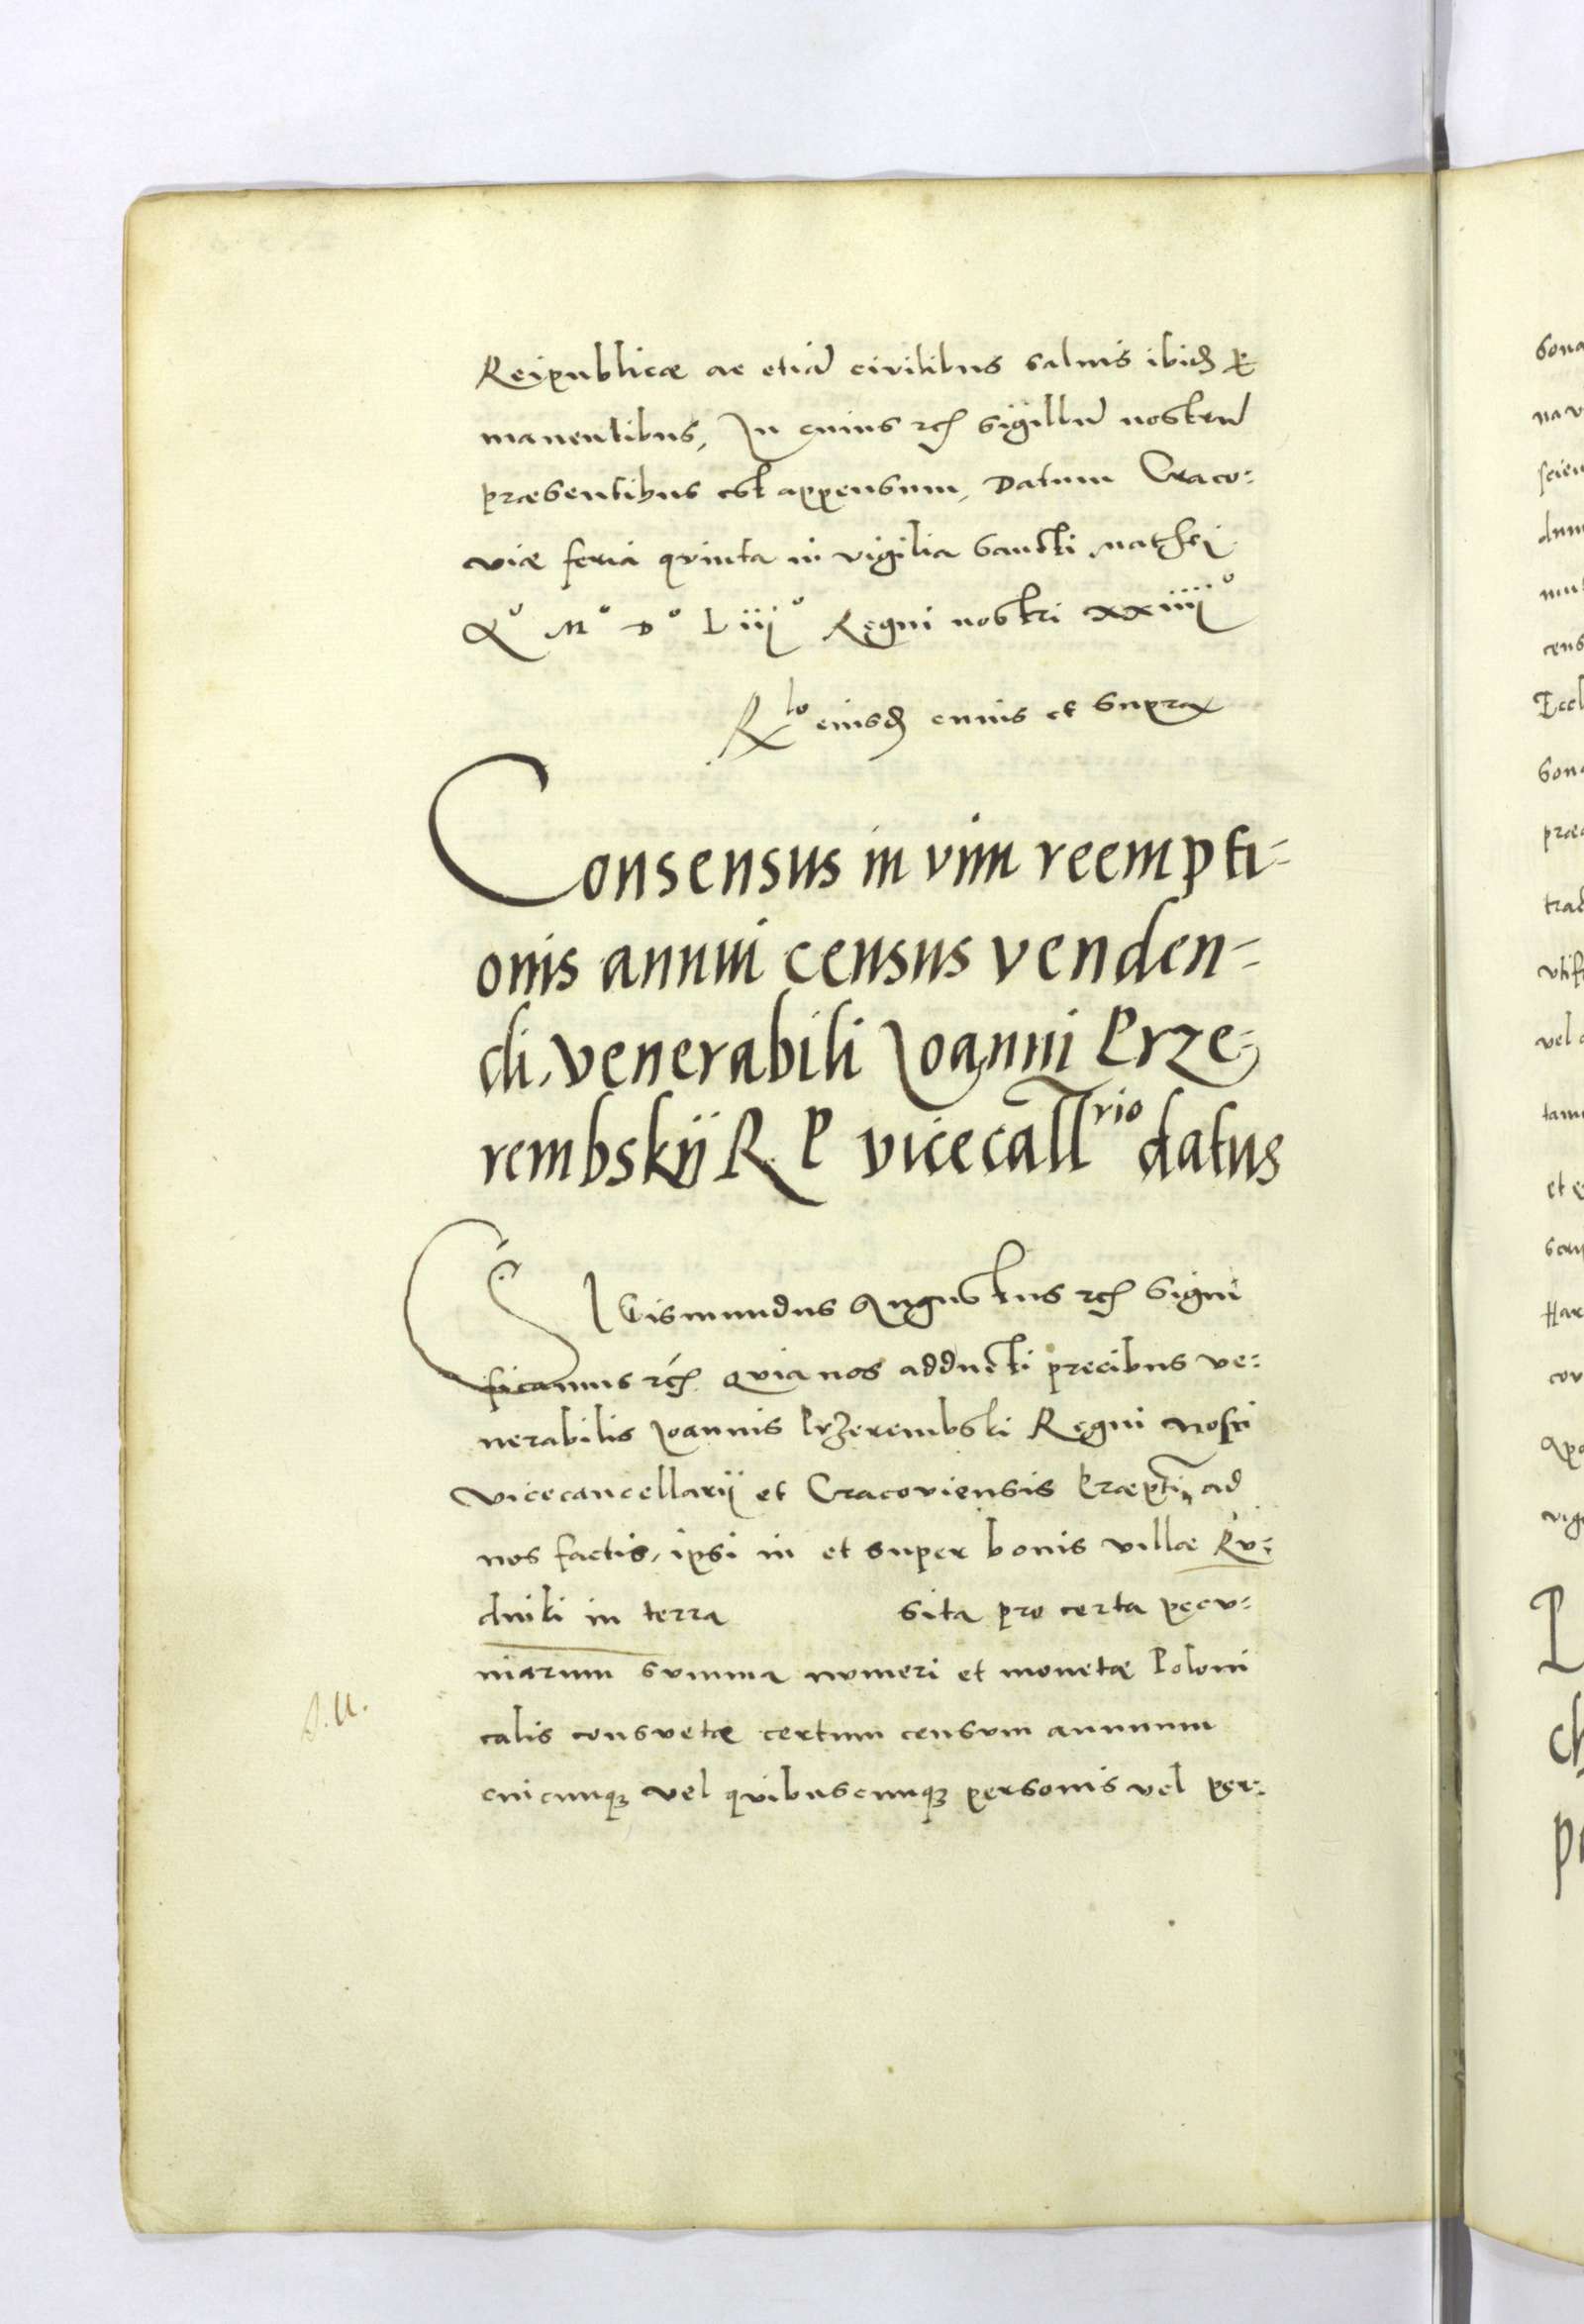 Reipublicæ ac etiã civilibus salvis ibid̃ ꝑ
manentibus, In cuius rc̃ sigillũ nostrũ
præsentibus est appensum, Datum Craco:
viæ feria qvinta in vigilia Sancti Mathei
Aº Mº Dº Liijº Regni nostri xxiiijº
Rlo eiusd̃ cuius et supra
Consensus in vim reempti-
onis annui census venden-
di, venerabili Joanni Prze-
rembskij R P vicecallrio datus
SIGismundus Augustus rc̃ Signi
ficamus rc̃ qvia nos adducti precibus ve:
nerabilis Joannis Przerembski Regni nosri
vicecancellarij et Cracoviensis Præpti, ad
nos factis, ipsi in et super bonis villæ Rv:
dniki in terra sita pro certa pecv:
niarum svmma nvmeri et monetæ Poloni
calis consvetæ certum censvm annuum
cuicunqꝫ vel qvibuscunqꝫ personis vel per:
sona
nav
scien
mus
cens
Eccl
sona
præ
trad
vel
tam
et
scri
Har
cor
Apo
vig
P
ch
pr